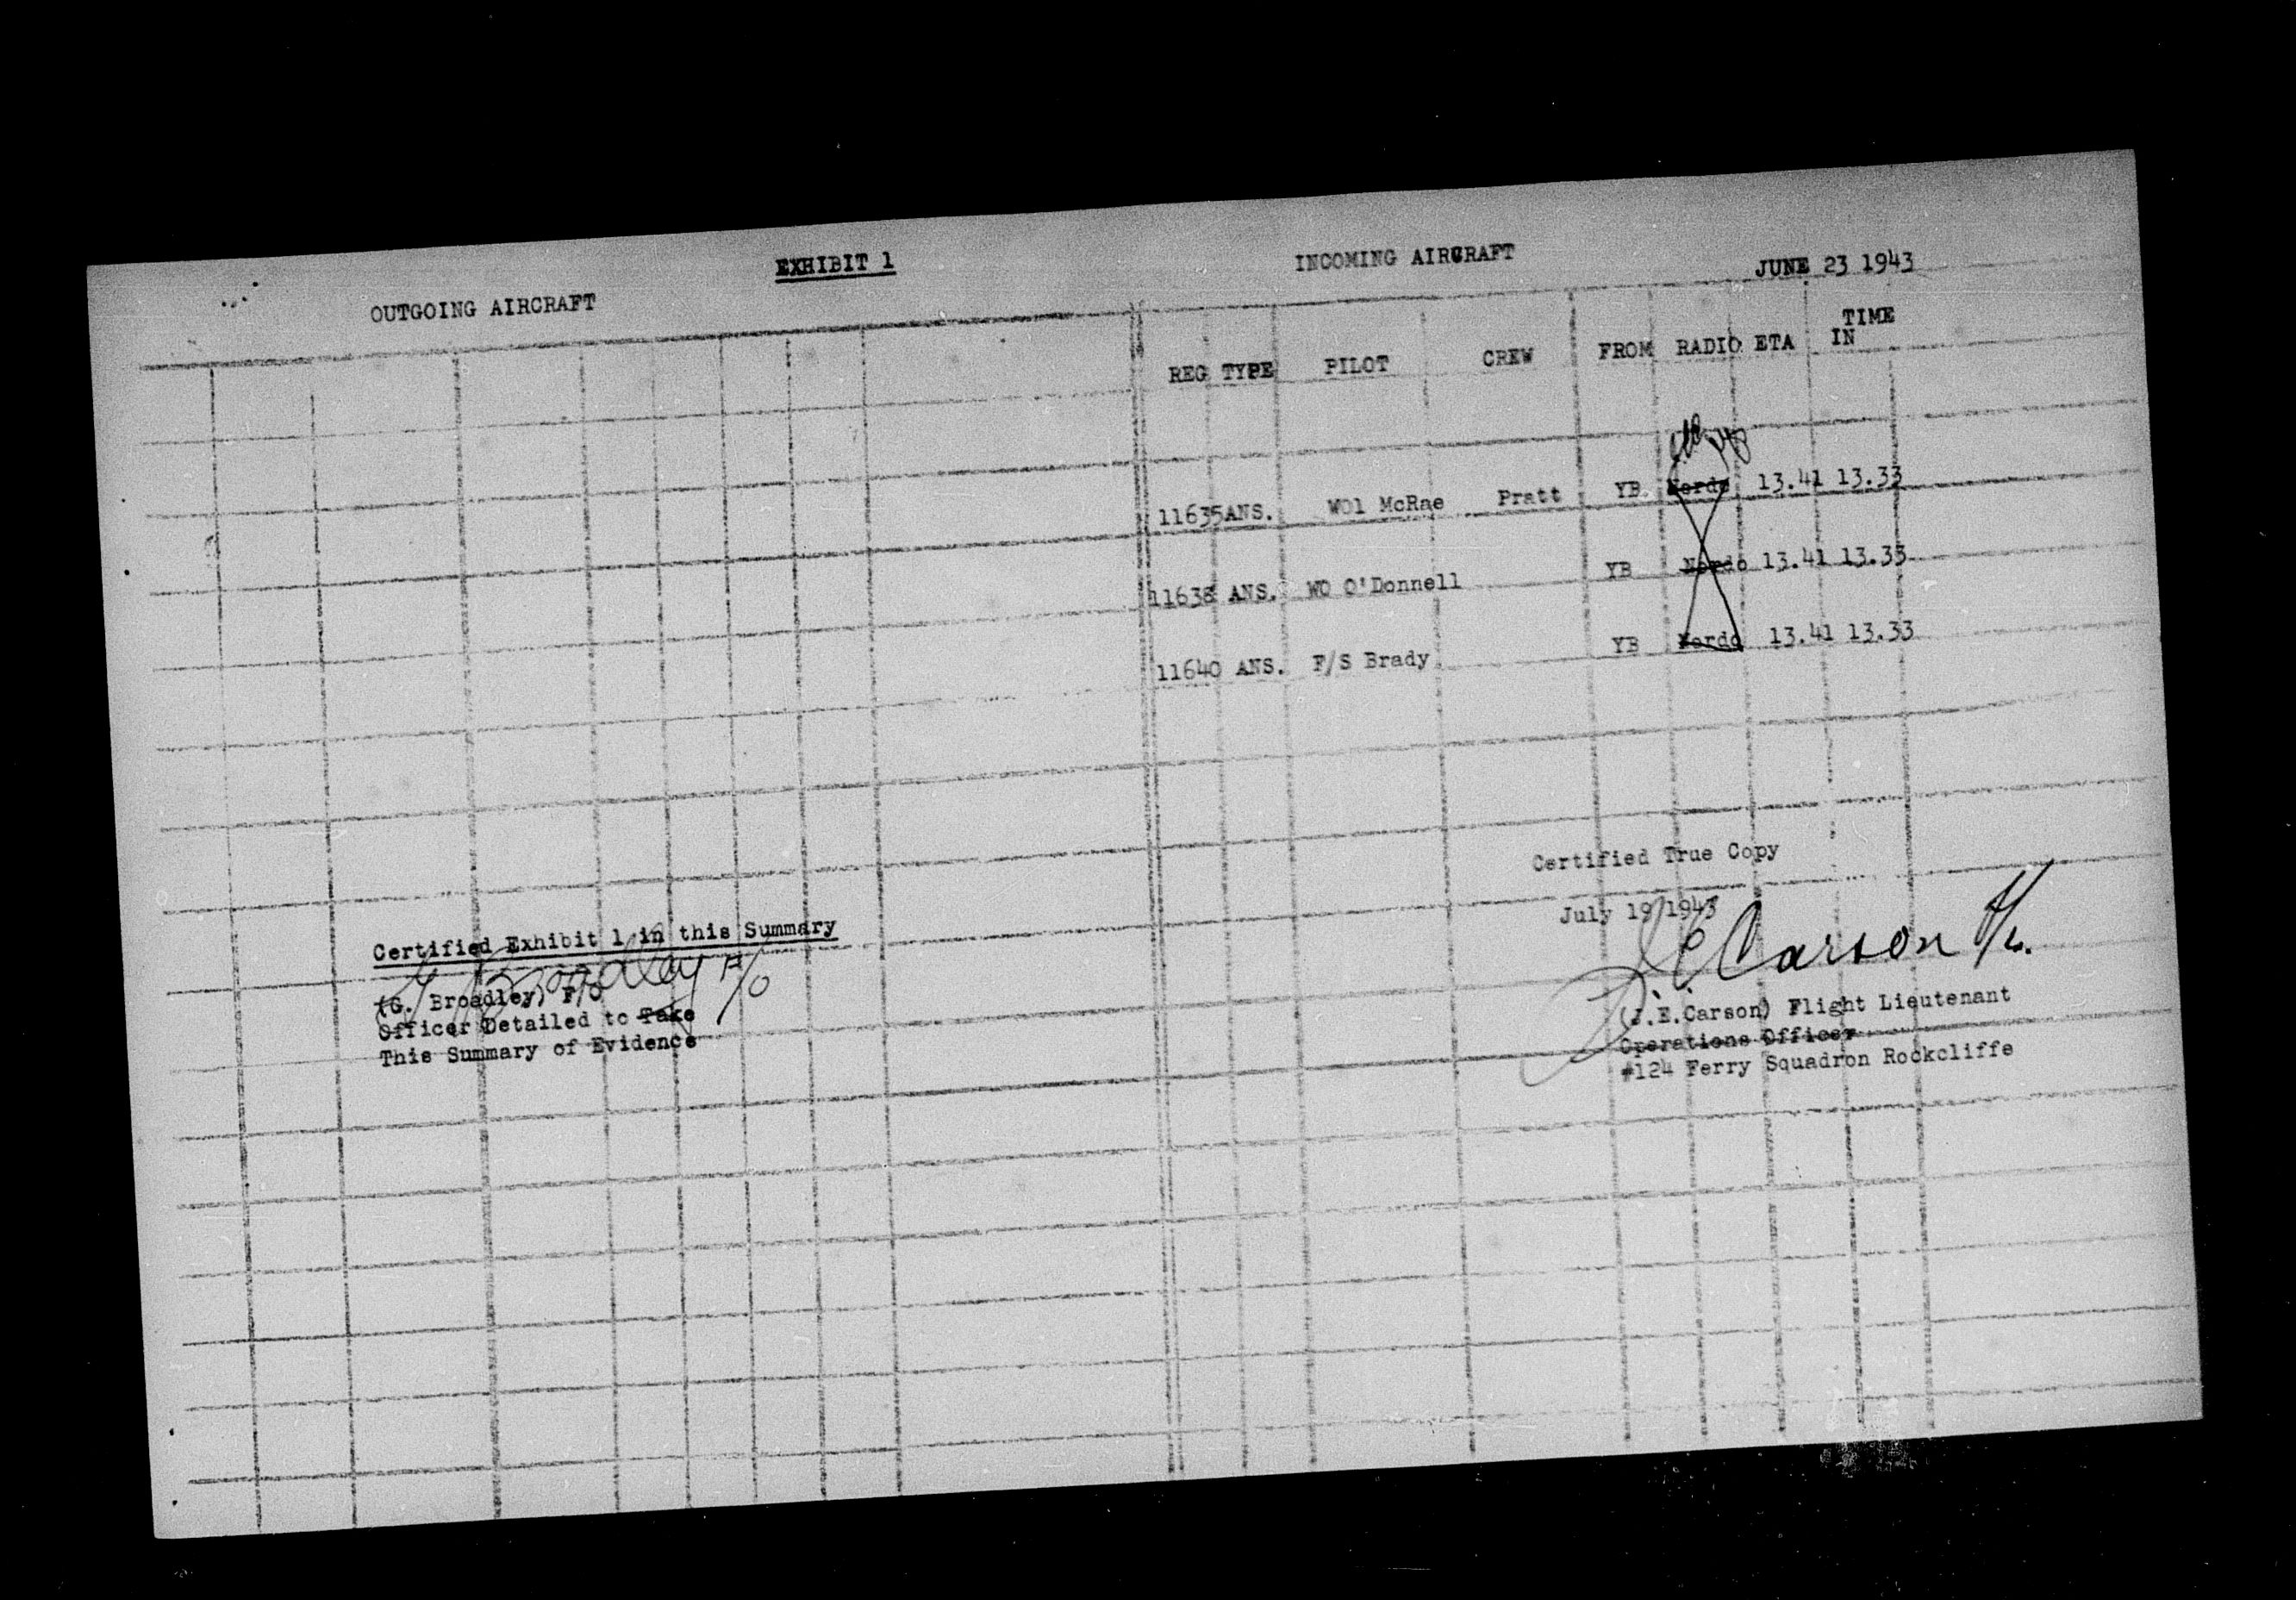 EXHIBIT 1
OUTGOING AIRCRAFT
INCOMING AIRCRAFT
JUNE 23 1943
REG TYPE PILOT CREW FROM RADIO ETA TIME IN
11635 ANS. WO1 McRae Pratt YB Nordo 13.41 13.33
11638 ANS. WO O'Donnell YB Nordo 13.41 13.33
11640 ANS. F/S Brady YB Nordo 13.41 13.33
Certified True Copy
July 19 1943
J E Carson F/L.
(J.E.Carson) Flight Lieutenant
Operations Officer
#124 Ferry Squadron Rockcliffe
Certified Exhibit 1 in this Summary
G Broadley F/O
(G. Broadley) F/O
Officer Detailed to Take
This Summary of Evidence